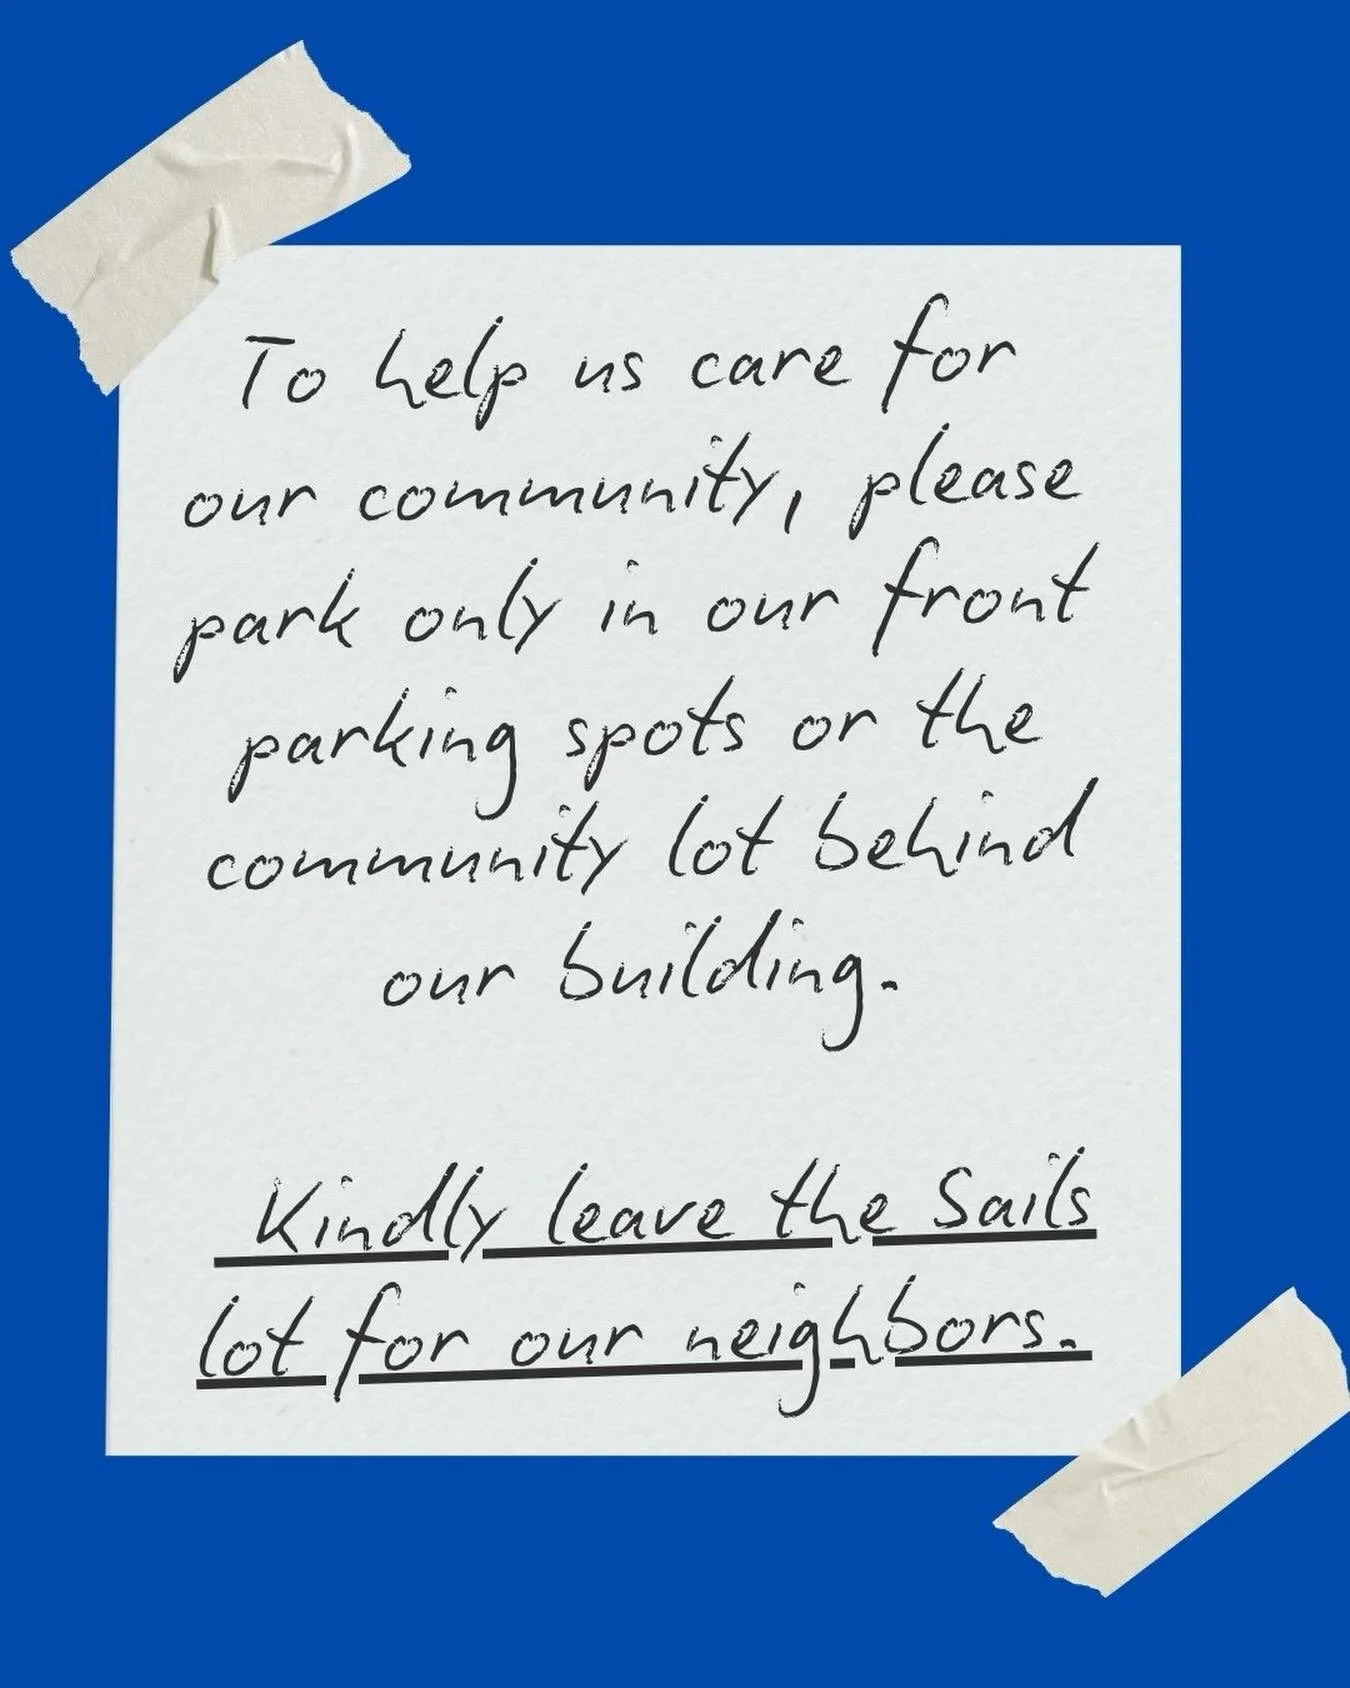 To help us care for
our community, please
park only in our front
parking spots or the
community lot behind
our building.
Kindly leave the Sails
lot for our neighbors.